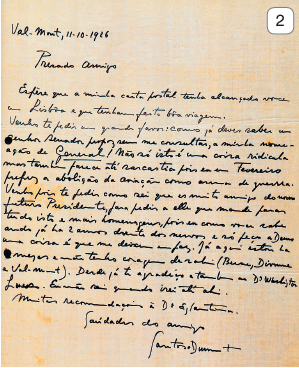 2
Val-Mont, 11-10-1926
Prezado Amigo
Espero que a minha carta postal tenha alcançado voce
em Lisboa e que tenham feito bôa viagem.
Venho te pedir um grande favor. Como já deves saber um
senhor Senador propoz, sem me consultar, a minha nome-
ação de General! Não só isto é uma coisa ridicula
mas tambem parece até sarcastico pois eu em Fevereiro
pedi a abolição da aviação como arma de guerra.
Venho pois te pedir como sei que es muito amigo do nosso
futuro Presidente, para pedir a elle que mande parar
tudo isto e mais homenagens, pois eu como voce sabe
ando já ha 2 annos doente dos nervos e só peço a Deus
uma coisa é que me deixem em paz. Já agora estou
começar a não ter coragem de sahir
a Val-Mont). Desde já te agradeço e tambem ao Dr Washington
Luis. Eu não sei quando irei até ahi.
Muitas recommendações à
Saudades do amigo
Santos=Dumont